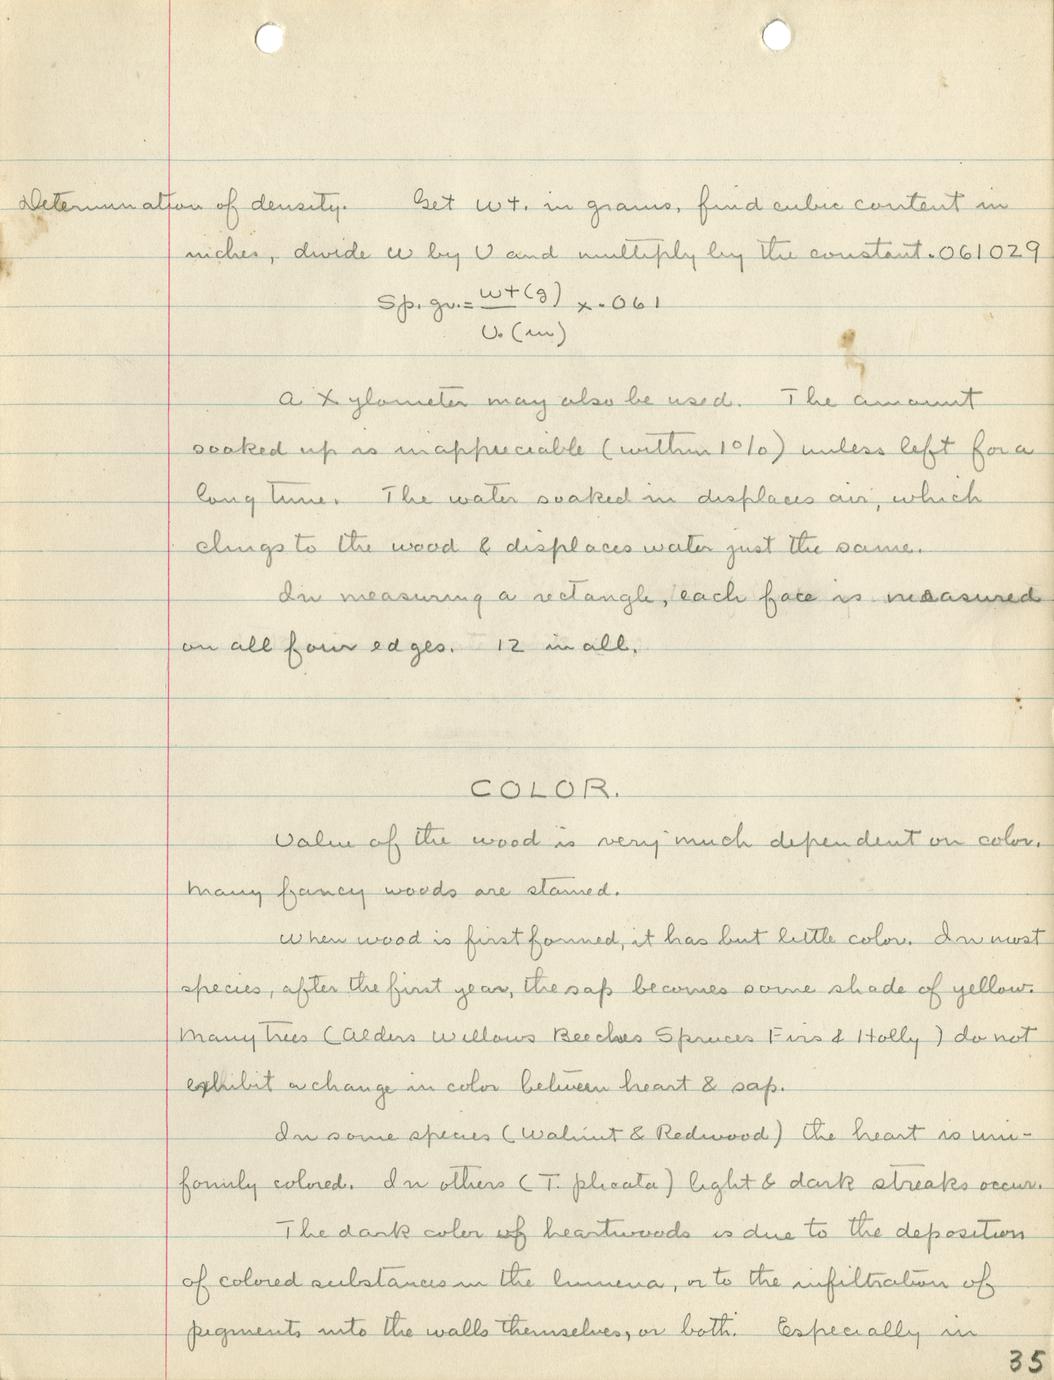 Determination of density. Get wt. in grams, find cubic content in
inches, divide W by V and multiply by the constant .061029
Sp. gr. = wt (g) x .061
V. (in)
A Xylometer may also be used. The amount
soaked up is inappreciable (within 1%) unless left for a
long time. The water soaked in displaces air, which
clings to the wood & displaces water just the same.
In measuring a rectangle, each face is measured
on all four edges. 12 in all.
COLOR.
Value of the wood is very much dependent on color.
Many fancy woods are stained.
When wood is first formed, it has but little color. In most
species, after the first year, the sap becomes some shade of yellow.
Many trees (Alders Willows Beeches Spruces Firs & Holly) do not
exhibit a change in color between heart & sap.
In some species (Walnut & Redwood) the heart is uni-
formly colored. In others (T. plicata) light & dark streaks occur.
The dark color of heartwoods is due to the deposition
of colored substances in the lumena, or to the infiltration of
pigments into the walls themselves, or both. Especially in
35